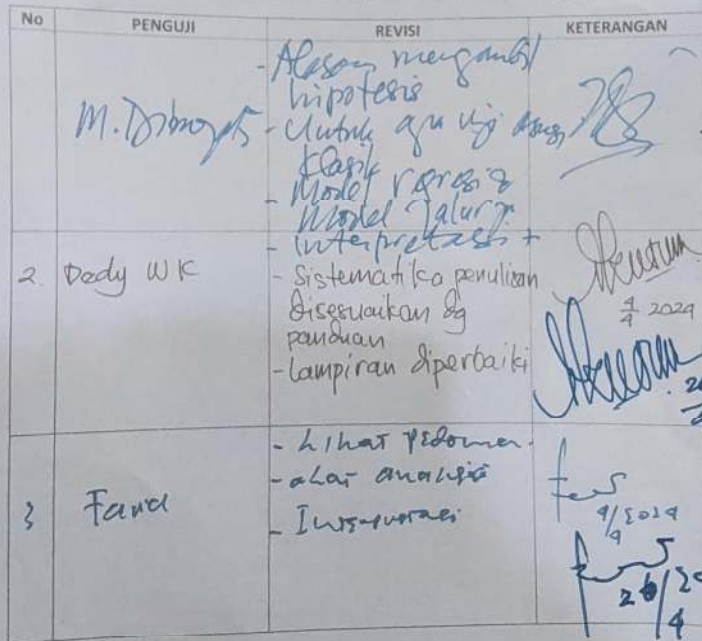 No PENGUJI REVISI KETERANGAN
- Alasan mengambil
hipotesis
M.
- Untuk apa uji
klasik
- Model regresi &
Model jalur
- Interpretasi +
2. Dedy WK
- Sistematika penulisan
disesuaikan dg
panduan
- Lampiran diperbaiki
4/4 2024
- Lihat pedoman
- alat analisis
3 Farid
- Interpretasi
4/4 2024
26/4